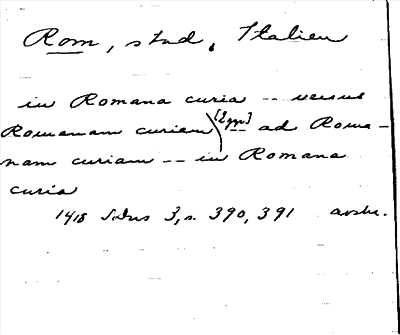 Rom, stad, Italien
in Romana curia -- versus
Romanam curiam [2 ggr] -- ad Roma-
nam curiam -- in Romana
curia
1418 SvDns 3, s. 390, 391 avskr.